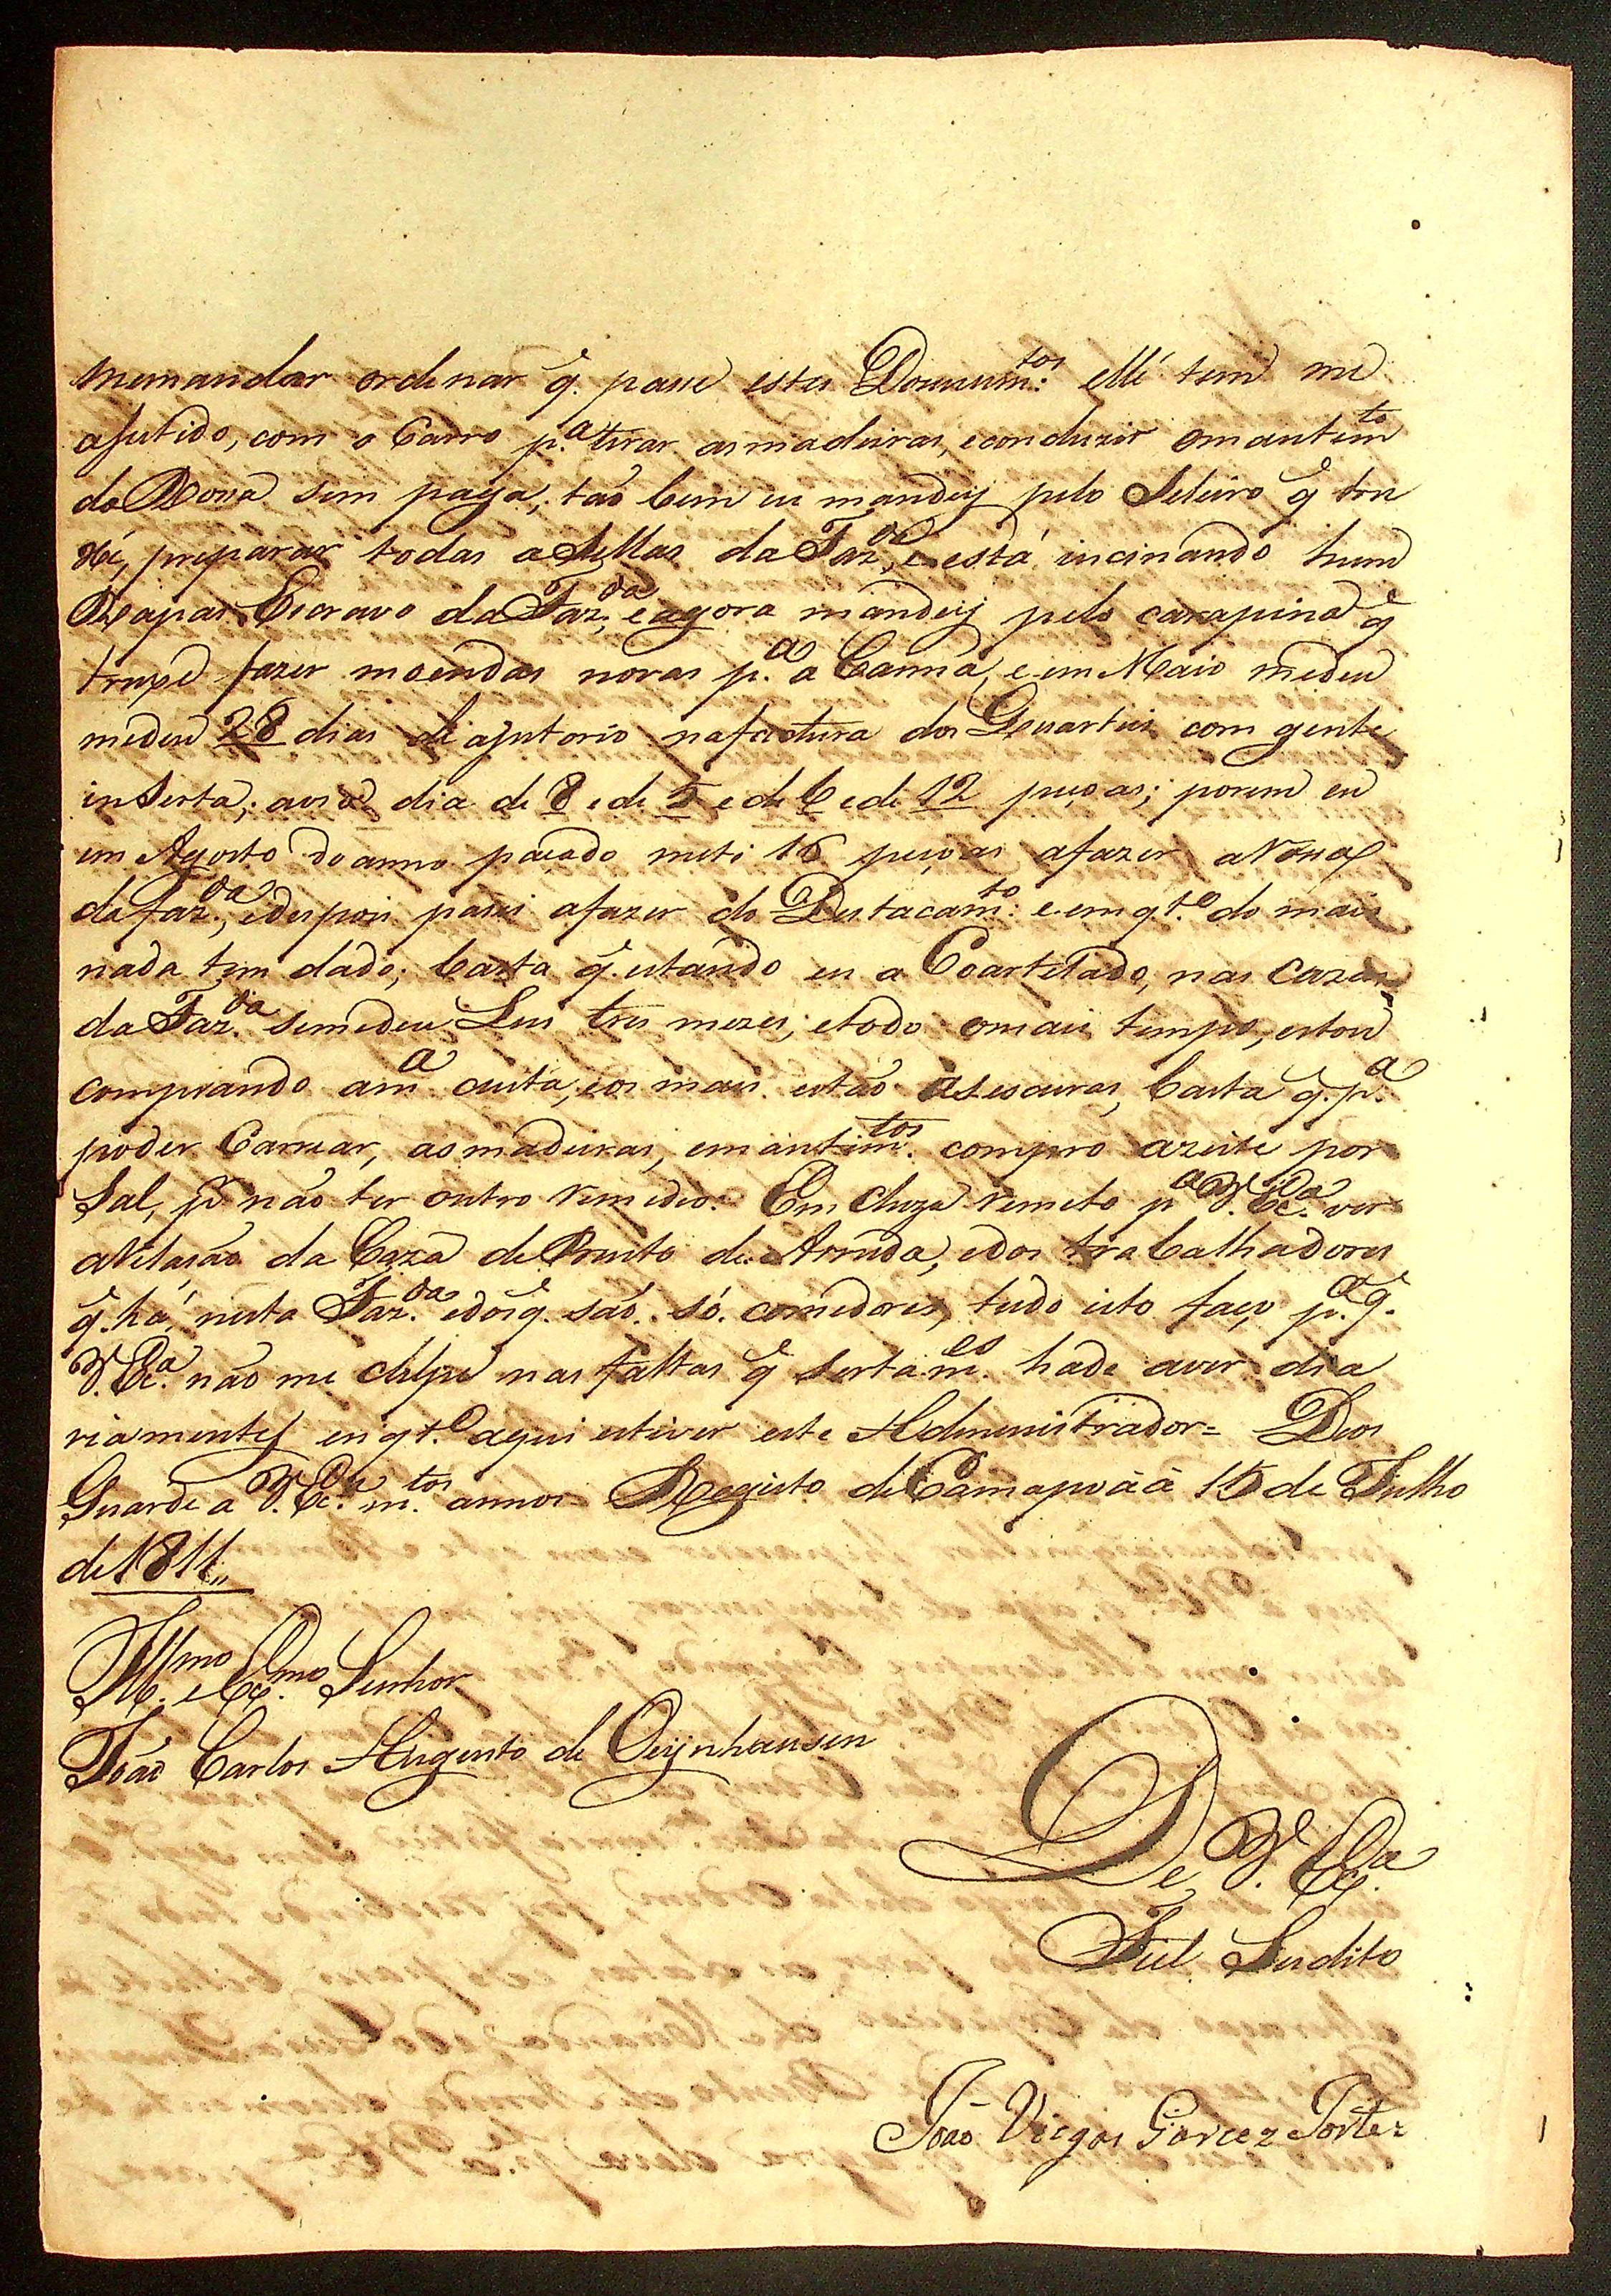 memandar ordenar q̃. passe estes Documtos: elle tem me
ajutido, com o Carro p.a tirar as madeiras, e conduzir omantimto
da Rossa sem paga; tão bem eu mandey pelo Seleiro q̃ tru
xé, preparar todas a Sellas da Fazda, e está incinando hum
Rapas Escravo da Fazda; e agora mandey pelo carapina q̃
truxe fazer moendas novas p.a a Canna, e em Maio medeu
medeu 28 dias de ajutorio nafactura dos Quarteis com gente
inserta; avia dia de 8 e de 5 e de 6 e de 12 peçoas; porem eu
em Agosto do anno paçado meti 16 peçoas afazer aRossa
da fazda., edespois passei afazer do Destacamto: e emqt.o do mais
nada tem dado; basta q̃. estando eu a Coartelado, nas Cazas
da Fazda. semedeu Lus tres mezes; etodo omais tempo, estou
comprando am.a custa, eos mais estão ásescuras, basta q̃. p.a
poder Carriar, as madeiras, emantimtos. compro azeite por
Sal, pr não ter outro remedio. Em cluza remeto p.a V. Ex.a ver
aRelasão da Caza de Bento de Arruda, edos trabalhadores
q̃. há nesta Fazda. edosq̃. são só comedores, tudo isto faço p.a q̃.
V. Ex.a não me culpe nas faltas q̃ sertames. hade aver dia
riamente, enqt.o aqui estiver este Administrador = Deos
Guarde a V. Ex.a m.tos annos Registo de Camapoãã 15 de Julho
de 1811,,
Ill.mo e Ex.mo Senhor
João Carlos Augusto de Oeynhausen
De V. Ex.a
Fiel Sudito
João Viegas Garcez Fortes